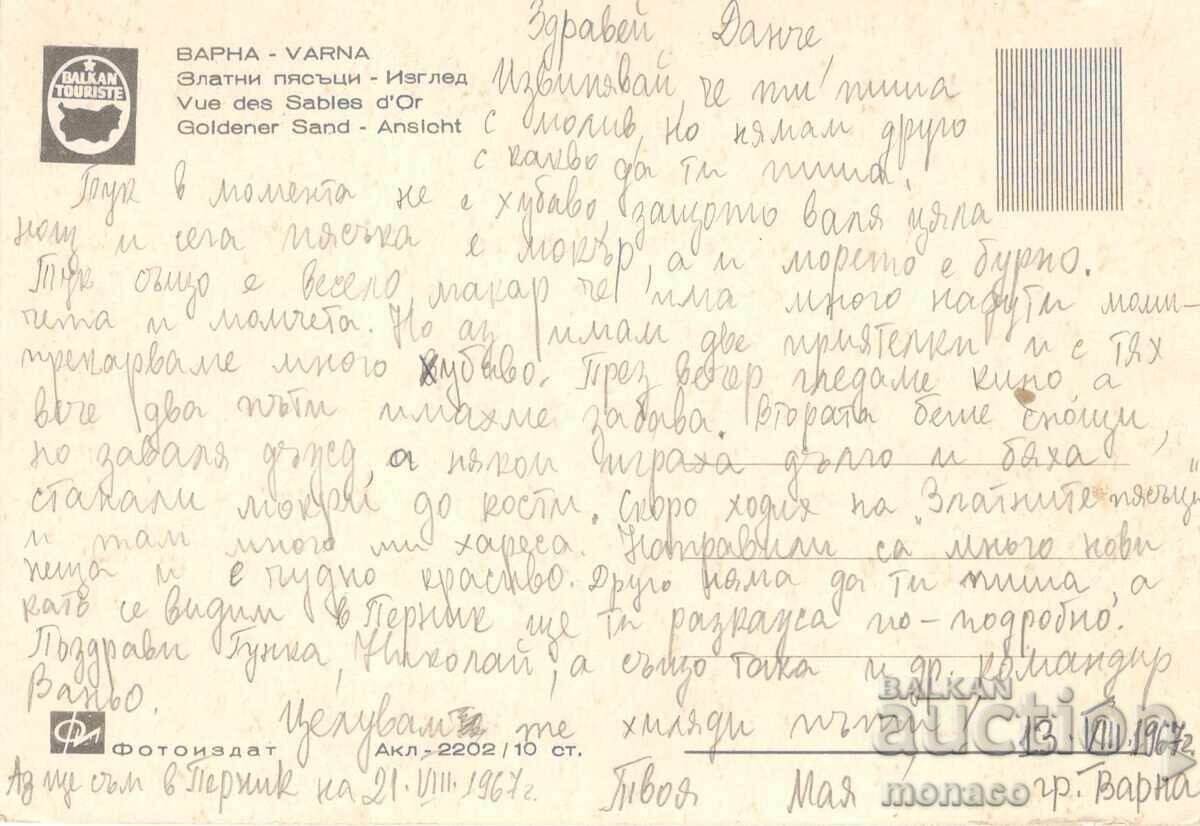 Здравей Данче
BALKAN
TOURISTE
ВАРНА - VARNA
Златни пясъци - Изглед
Vue des Sables d'Or
Goldener Sand - Ansicht
Извинявай, че ти пиша
с молив, но нямам друго
с какво да ти пиша.
Тук в момента не е хубаво, защото валя цяла
нощ и сега пясъка е мокър, а и морето е бурно.
Тук също е весело, макар че има много надути моми-
чета и момчета. Но аз имам две приятелки и с тях
прекарваме много хубаво. През вечер гледаме кино а
вече два пъти имахме забава. Втората беше снощи,
но заваля дъжд, а някои играха дълго и бяха
станали мокри до кости. Скоро ходих на „Златните пясъци"
и там много ми хареса. Направили са много нови
неща и е чудно красиво. Друго няма да ти пиша, а
като се видим в Перник ще ти разкажа по-подробно.
Поздрави Гунка, Николай, а също така и др. командир
Ваньо.
Целувам те хиляди пъти!
13.VIII.1967г.
Фотоиздат
Акл-2202/10 ст.
Аз ще съм в Перник на 21.VIII.1967г.
Твоя Мая
гр. Варна
BALKAN
auction
monaco